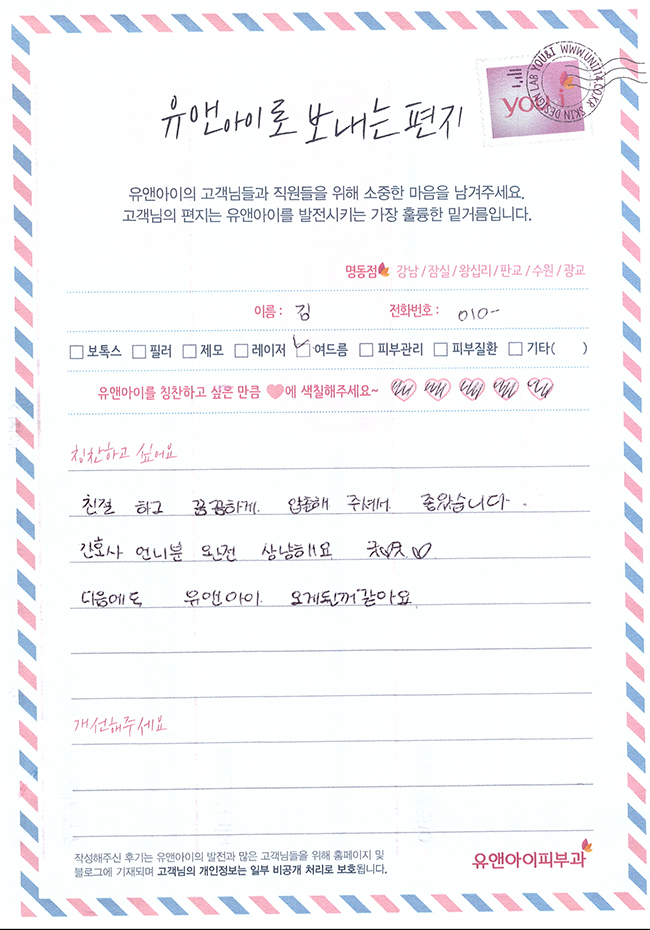 유앤아이로 보내는 편지
SKIN DESIGN LAB YOU&I WWW.UNI114.CO.KR
you i
유앤아이의 고객님들과 직원들을 위해 소중한 마음을 남겨주세요.
고객님의 편지는 유앤아이를 발전시키는 가장 훌륭한 밑거름입니다.
명동점 강남 / 잠실 / 왕십리 / 판교 / 수원 / 광교
이름 : 김 전화번호 : 010-
보톡스 필러 제모 레이저 여드름 피부관리 피부질환 기타( )
유앤아이를 칭찬하고 싶은 만큼 에 색칠해주세요~
칭찬하고 싶어요
친절 하고 꼼꼼하게 압출해 주셔서 좋았습니다.
간호사 언니분 완전 상냥해요 굿굿
다음에도 유앤아이 오게될꺼같아요
개선해주세요
작성해주신 후기는 유앤아이의 발전과 많은 고객님들을 위해 홈페이지 및
블로그에 기재되며 고객님의 개인정보는 일부 비공개 처리로 보호됩니다.
유앤아이피부과